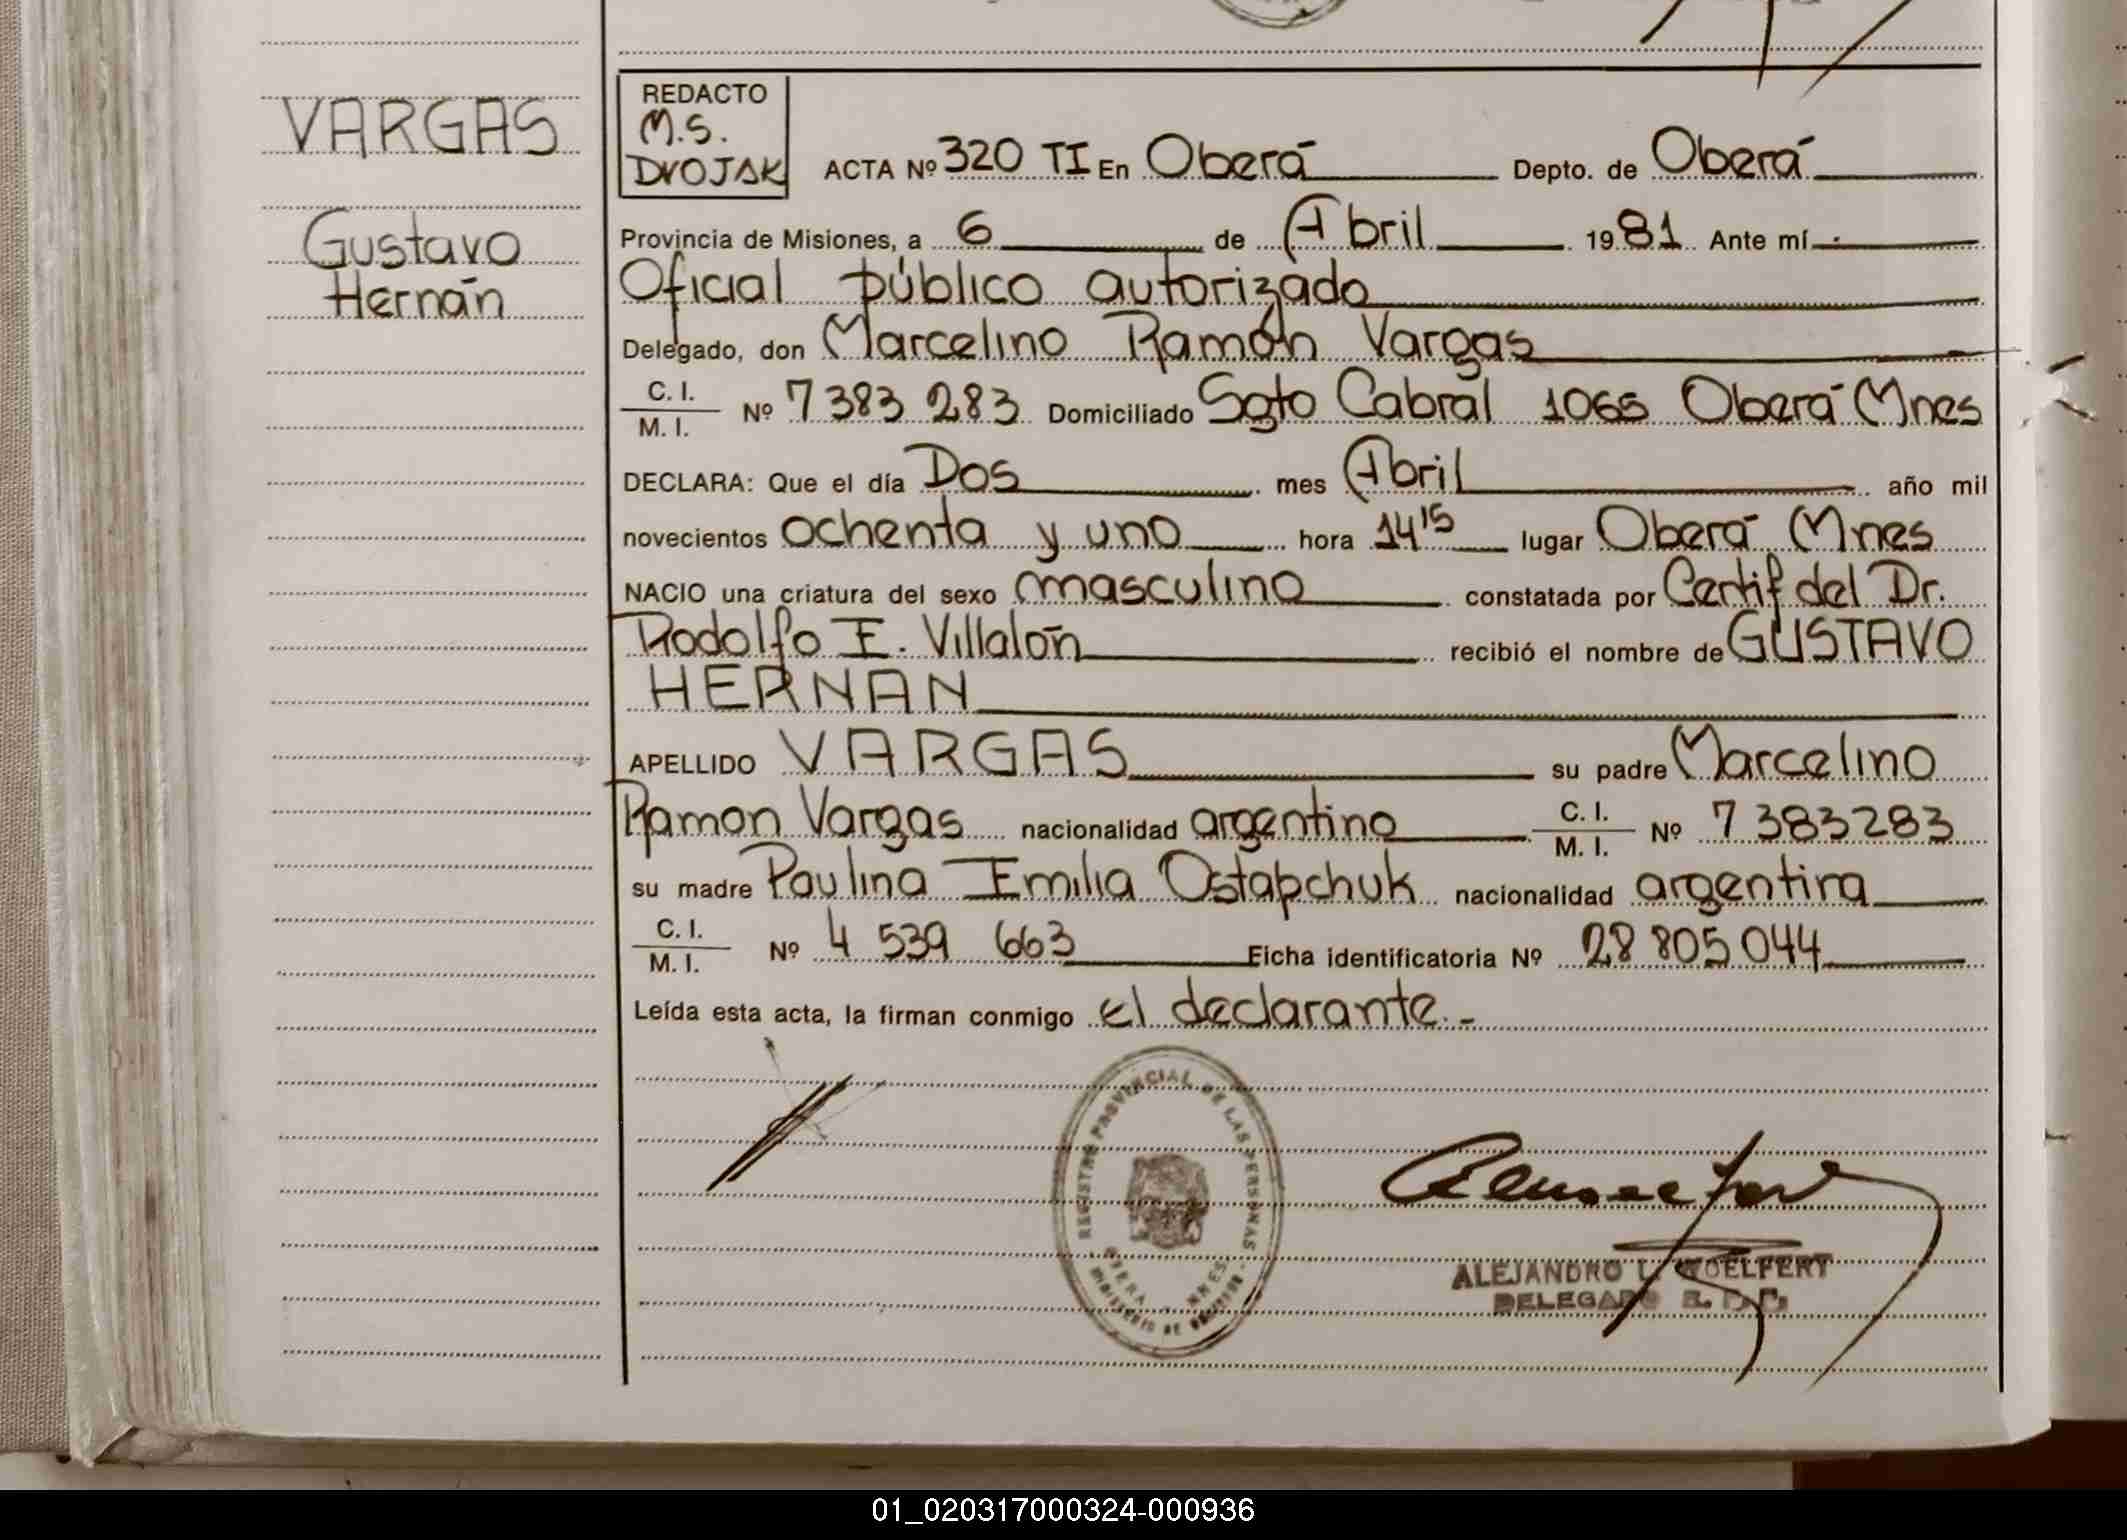 VARGAS
Gustavo
Hernán
REDACTO
M.S.
DVOJAK
ACTA Nº 320 TI En Oberá Depto. de Oberá
Provincia de Misiones, a 6 de Abril 1981 Ante mí
Oficial público autorizado
Delegado, don Marcelino Ramón Vargas
C. I.
M. I. Nº 7 383 283 Domiciliado Sgto Cabral 1065 Oberá Mnes
DECLARA: Que el día Dos mes Abril año mil
novecientos ochenta y uno hora 14 15 lugar Oberá Mnes
NACIO una criatura del sexo masculino constatada por Certif del Dr.
Rodolfo E. Villalón recibió el nombre de GUSTAVO
HERNAN
APELLIDO VARGAS su padre Marcelino
Ramon Vargas nacionalidad argentino C. I. M. I. Nº 7 383283
su madre Paulina Emilia Ostapchuk nacionalidad argentina
C. I.
M. I. Nº 4 539 663 Ficha identificatoria Nº 28 805 044
Leída esta acta, la firman conmigo el declarante.-
REGISTRO PROVINCIAL DE LAS PERSONAS
OBERA - MNES.
MINISTERIO DE
ALEJANDRO L. WOELFERT
DELEGADO
01_020317000324-000936